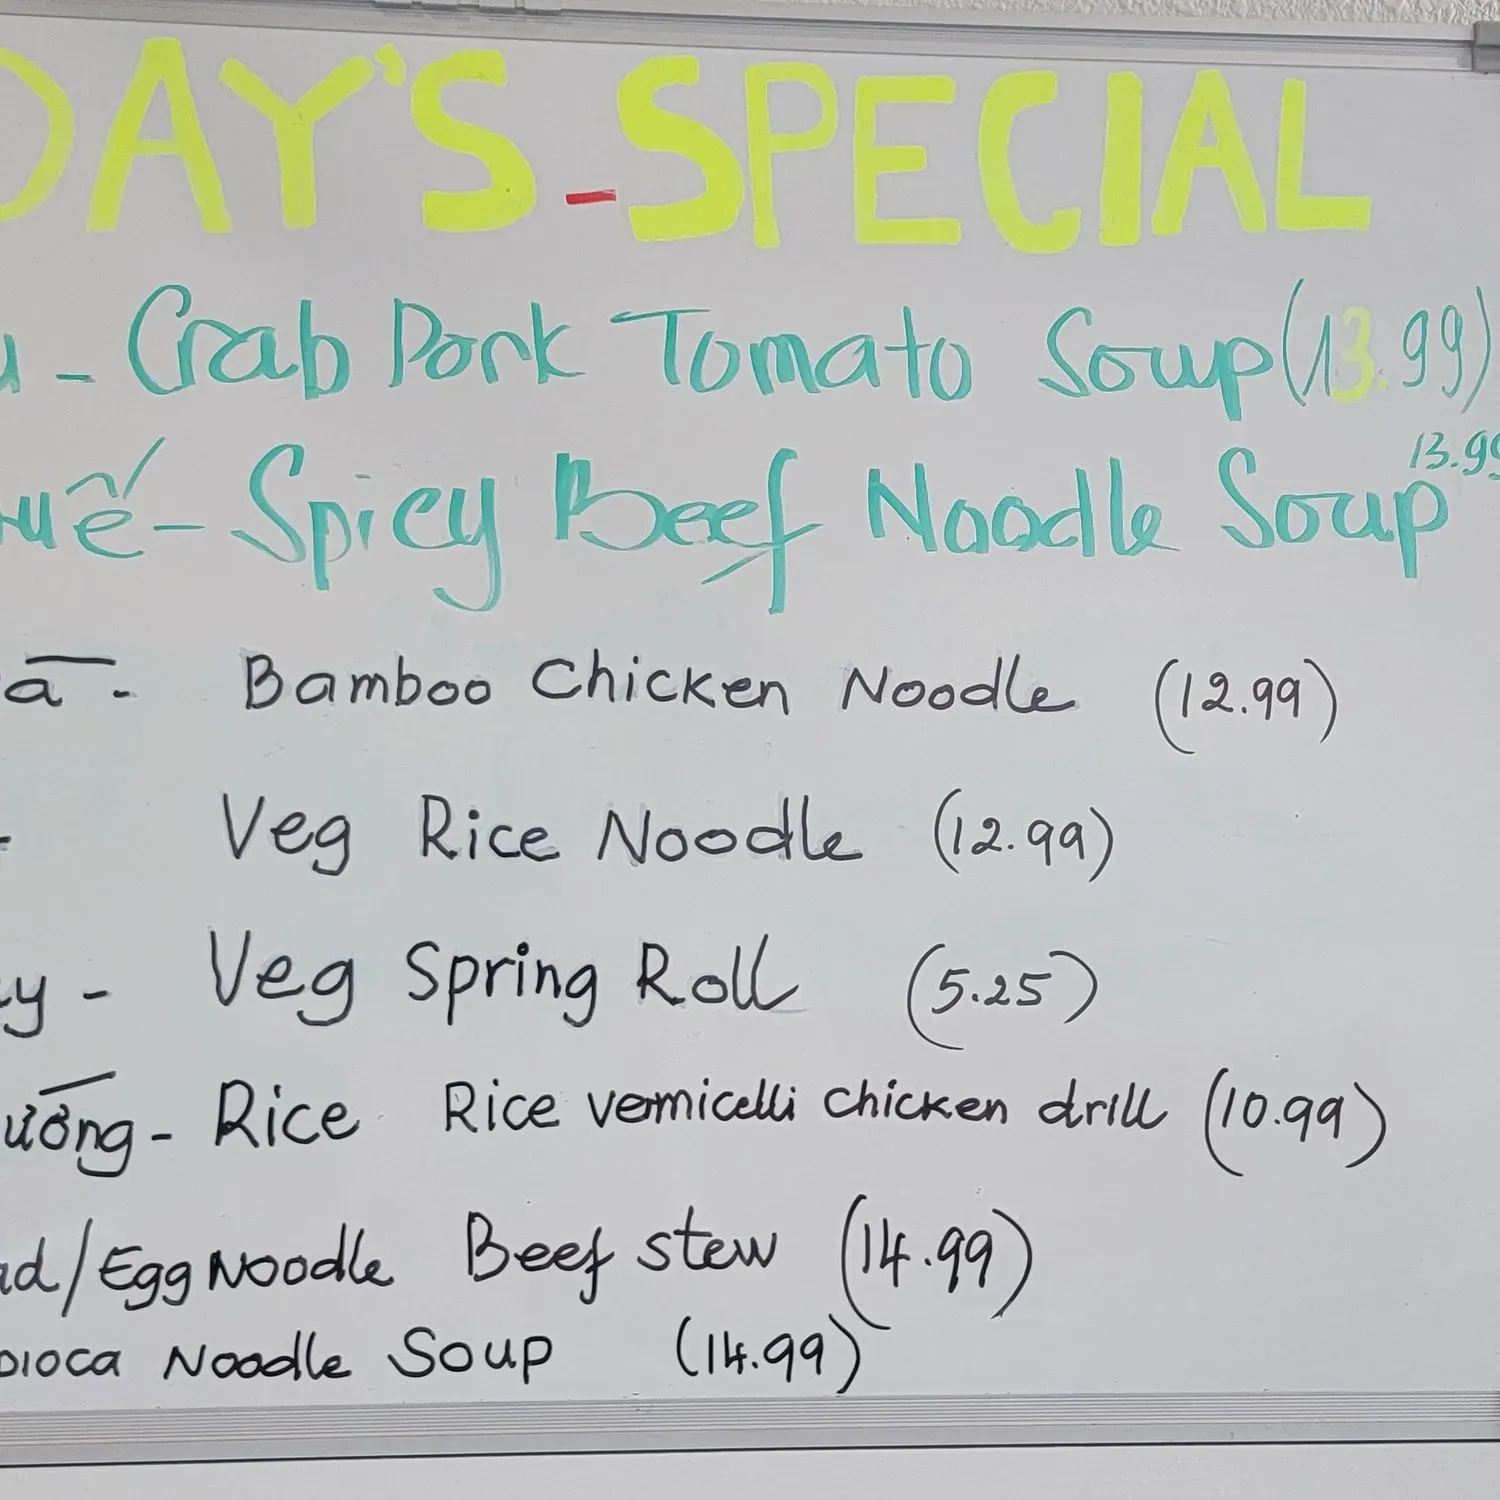 DAY'S-SPECIAL
u - Crab Pork Tomato Soup (13.99)
uế - Spicy Beef Noodle Soup 13.99
a - Bamboo Chicken Noodle (12.99)
- Veg Rice Noodle (12.99)
y - Veg Spring Roll (5.25)
ướng - Rice Rice vermicelli chicken drill (10.99)
ad/Egg Noodle Beef stew (14.99)
pioca Noodle Soup (14.99)